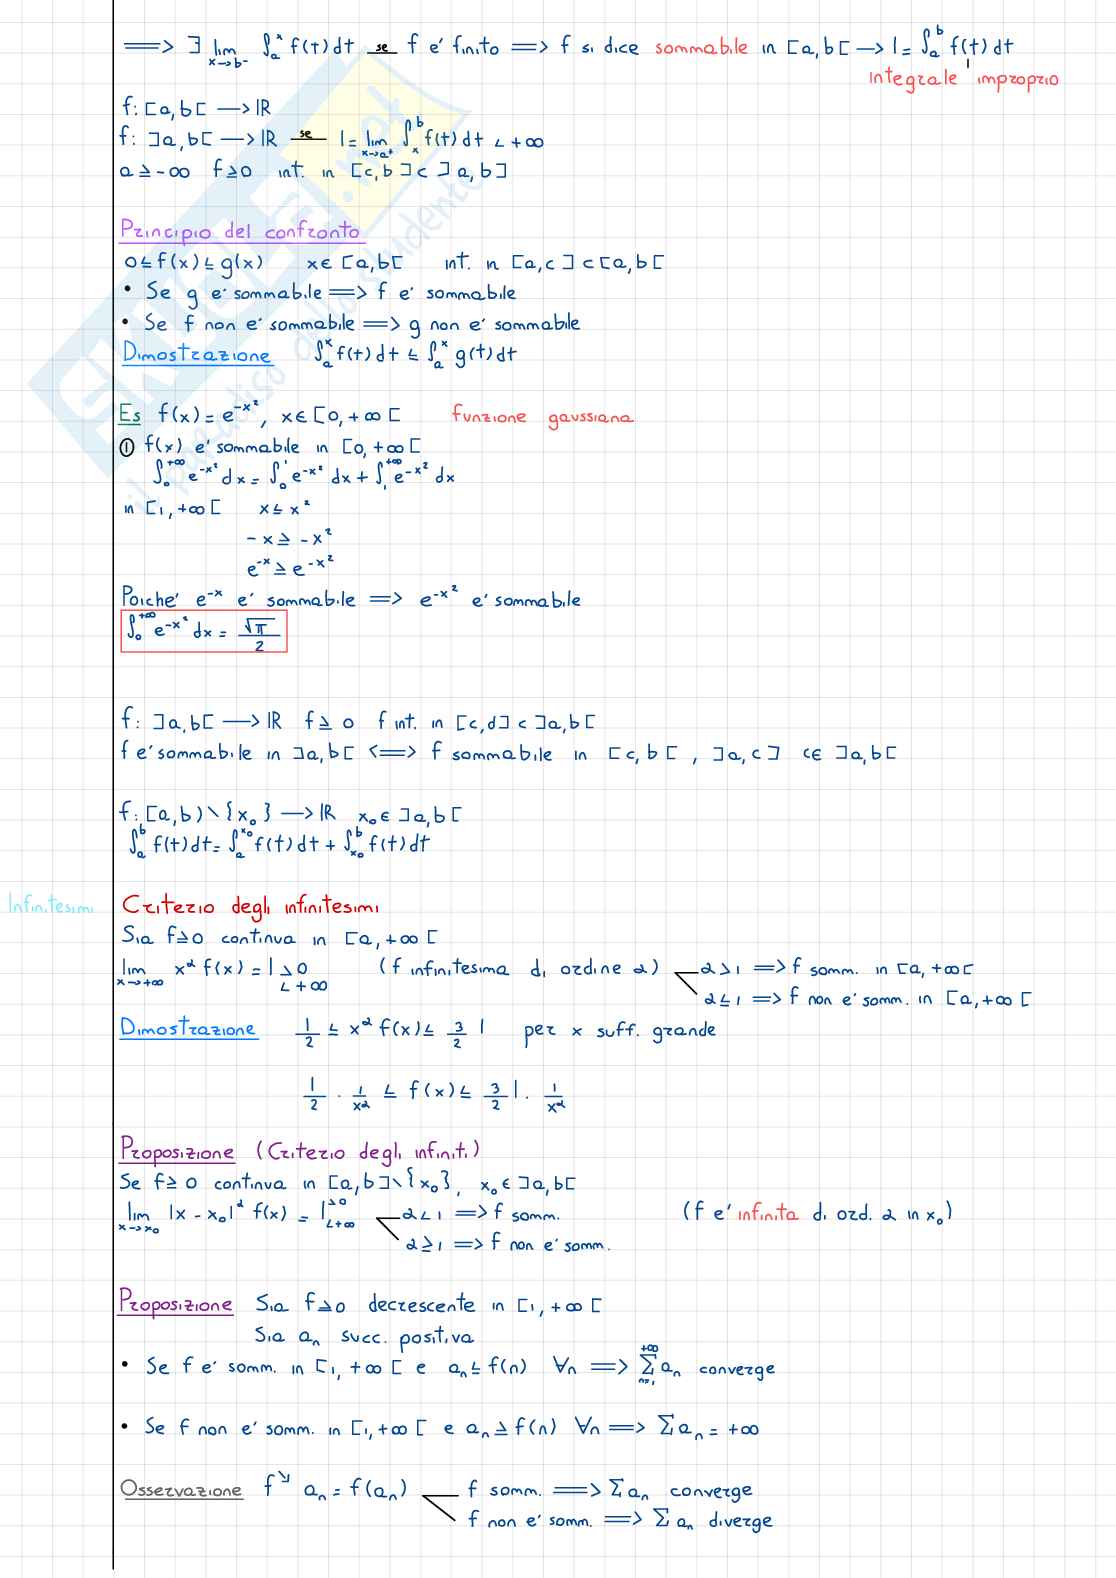 ⟹ ∃ lim x→b⁻ ∫ₐˣ f(t) dt se f e' finito ⟹ f si dice sommabile in [a, b[ → l = ∫ₐᵇ f(t) dt
integrale improprio
f: [a, b[ → ℝ
f: ]a, b[ → ℝ se l = lim x→a⁺ ∫ₓᵇ f(t) dt < +∞
a ≥ -∞ f ≥ 0 int. in [c, b] ⊂ ]a, b]
Principio del confronto
0 ≤ f(x) ≤ g(x) x ∈ [a, b[ int. in [a, c] ⊂ [a, b[
• Se g e' sommabile ⟹ f e' sommabile
• Se f non e' sommabile ⟹ g non e' sommabile
Dimostrazione ∫ₐˣ f(t) dt ≤ ∫ₐˣ g(t) dt
Es f(x) = e^(-x²), x ∈ [0, +∞[ funzione gaussiana
① f(x) e' sommabile in [0, +∞[
∫₀^(+∞) e^(-x²) dx = ∫₀¹ e^(-x²) dx + ∫₁^(+∞) e^(-x²) dx
in [1, +∞[ x ≤ x²
-x ≥ -x²
e^(-x) ≥ e^(-x²)
Poiche' e^(-x) e' sommabile ⟹ e^(-x²) e' sommabile
∫₀^(+∞) e^(-x²) dx = √π / 2
f: ]a, b[ → ℝ f ≥ 0 f int. in [c, d] ⊂ ]a, b[
f e' sommabile in ]a, b[ ⟺ f sommabile in [c, b[ , ]a, c] c ∈ ]a, b[
f: [a, b) \ {x₀} → ℝ x₀ ∈ ]a, b[
∫ₐᵇ f(t) dt = ∫ₐ^(x₀) f(t) dt + ∫_(x₀)^b f(t) dt
Infinitesimi Criterio degli infinitesimi
Sia f ≥ 0 continua in [a, +∞[
lim x→+∞ x^α f(x) = l >0 <+∞ (f infinitesima di ordine α) α > 1 ⟹ f somm. in [a, +∞[
α ≤ 1 ⟹ f non e' somm. in [a, +∞[
Dimostrazione l/2 ≤ x^α f(x) ≤ 3/2 l per x suff. grande
l/2 · 1/x^α ≤ f(x) ≤ 3/2 l · 1/x^α
Proposizione (Criterio degli infiniti)
Se f ≥ 0 continua in [a, b] \ {x₀}, x₀ ∈ ]a, b[
lim x→x₀ |x - x₀|^α f(x) = l >0 <+∞ α < 1 ⟹ f somm. (f e' infinita di ord. α in x₀)
α ≥ 1 ⟹ f non e' somm.
Proposizione Sia f ≥ 0 decrescente in [1, +∞[
Sia aₙ succ. positiva
• Se f e' somm. in [1, +∞[ e aₙ ≤ f(n) ∀n ⟹ Σ_(n=1)^(+∞) aₙ converge
• Se f non e' somm. in [1, +∞[ e aₙ ≥ f(n) ∀n ⟹ Σ aₙ = +∞
Osservazione f↘ aₙ = f(aₙ) f somm. ⟹ Σ aₙ converge
f non e' somm. ⟹ Σ aₙ diverge
SKUOLA.net
il paradiso dello studente